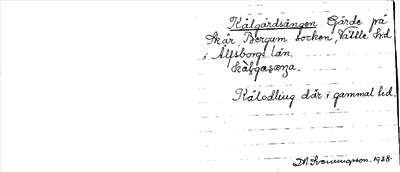 Kålgårdsängen Gärde på
Skår, Bergum socken, Vättle hd
i Älfsborgs län.
Kålodling där i gammal tid.
1928.